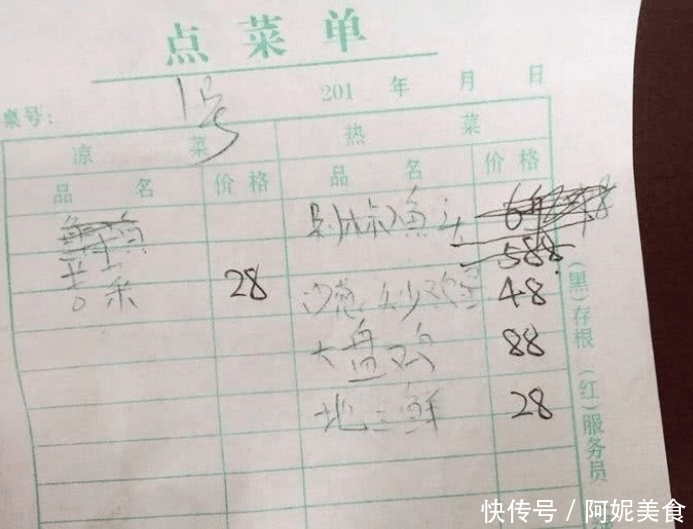 点菜单
桌号: 1号 201 年 月 日
凉菜 热菜
品名 价格 品名 价格
剁椒鱼头
588
苦菜 28 沙葱炒鸡蛋 48
大盘鸡 88
地三鲜 28
(黑)存根 (红)服务员
快传号 / 阿妮美食